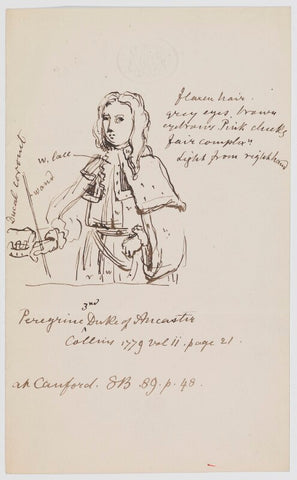 flaxen hair.
grey eyes. brown
eyebrows Pink cheeks
fair complex.
Light from right hand
Ducal coronet
wand
w. lace
Peregrine 3rd Duke of Ancaster
Collins 1779 vol II. page 21.
at Canford. SB 89. p. 48.